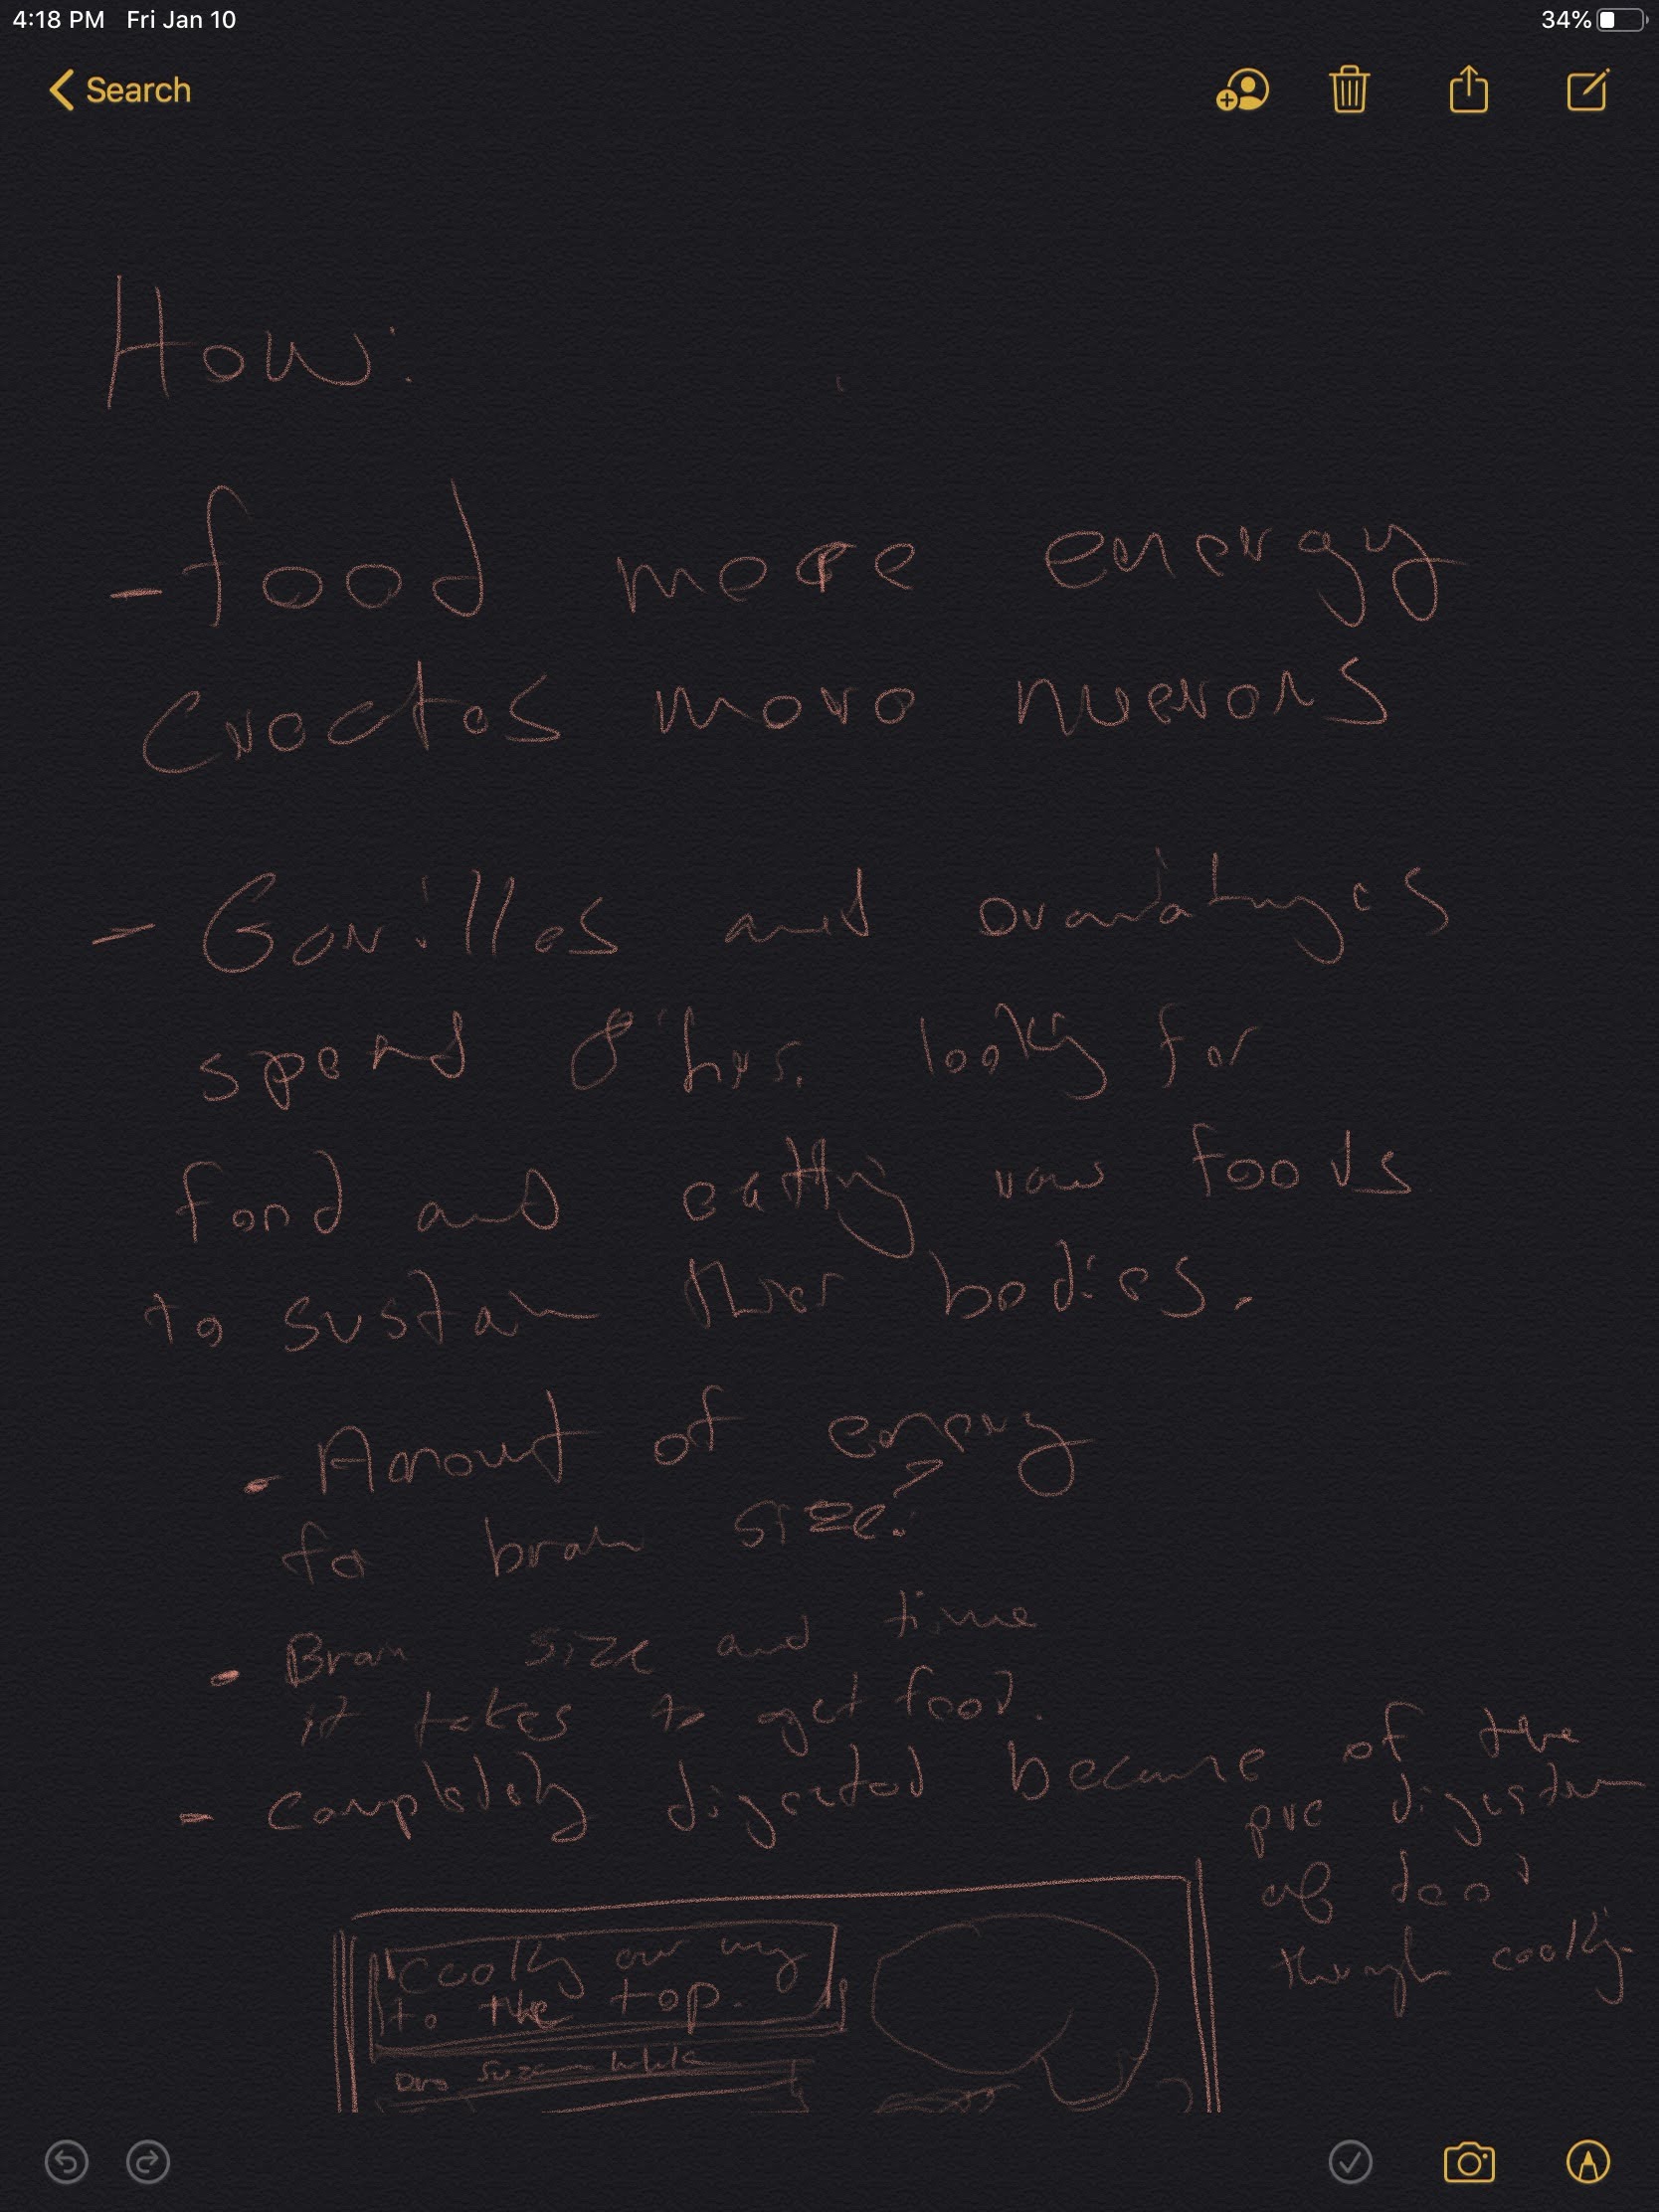 4:18 PM Fri Jan 10
34%
Search
How:
- food more energy
creates more nuerons
- Gorillas and
spend 8 hrs. looking for
food and eatting raw foods
to sustain thier bodies.
- Amount of energy
for brain size?
- Brain size and time
it takes to get food.
- completely digested because of the
pre digestion
of food
through cooking
"Cooking our way
to the top.